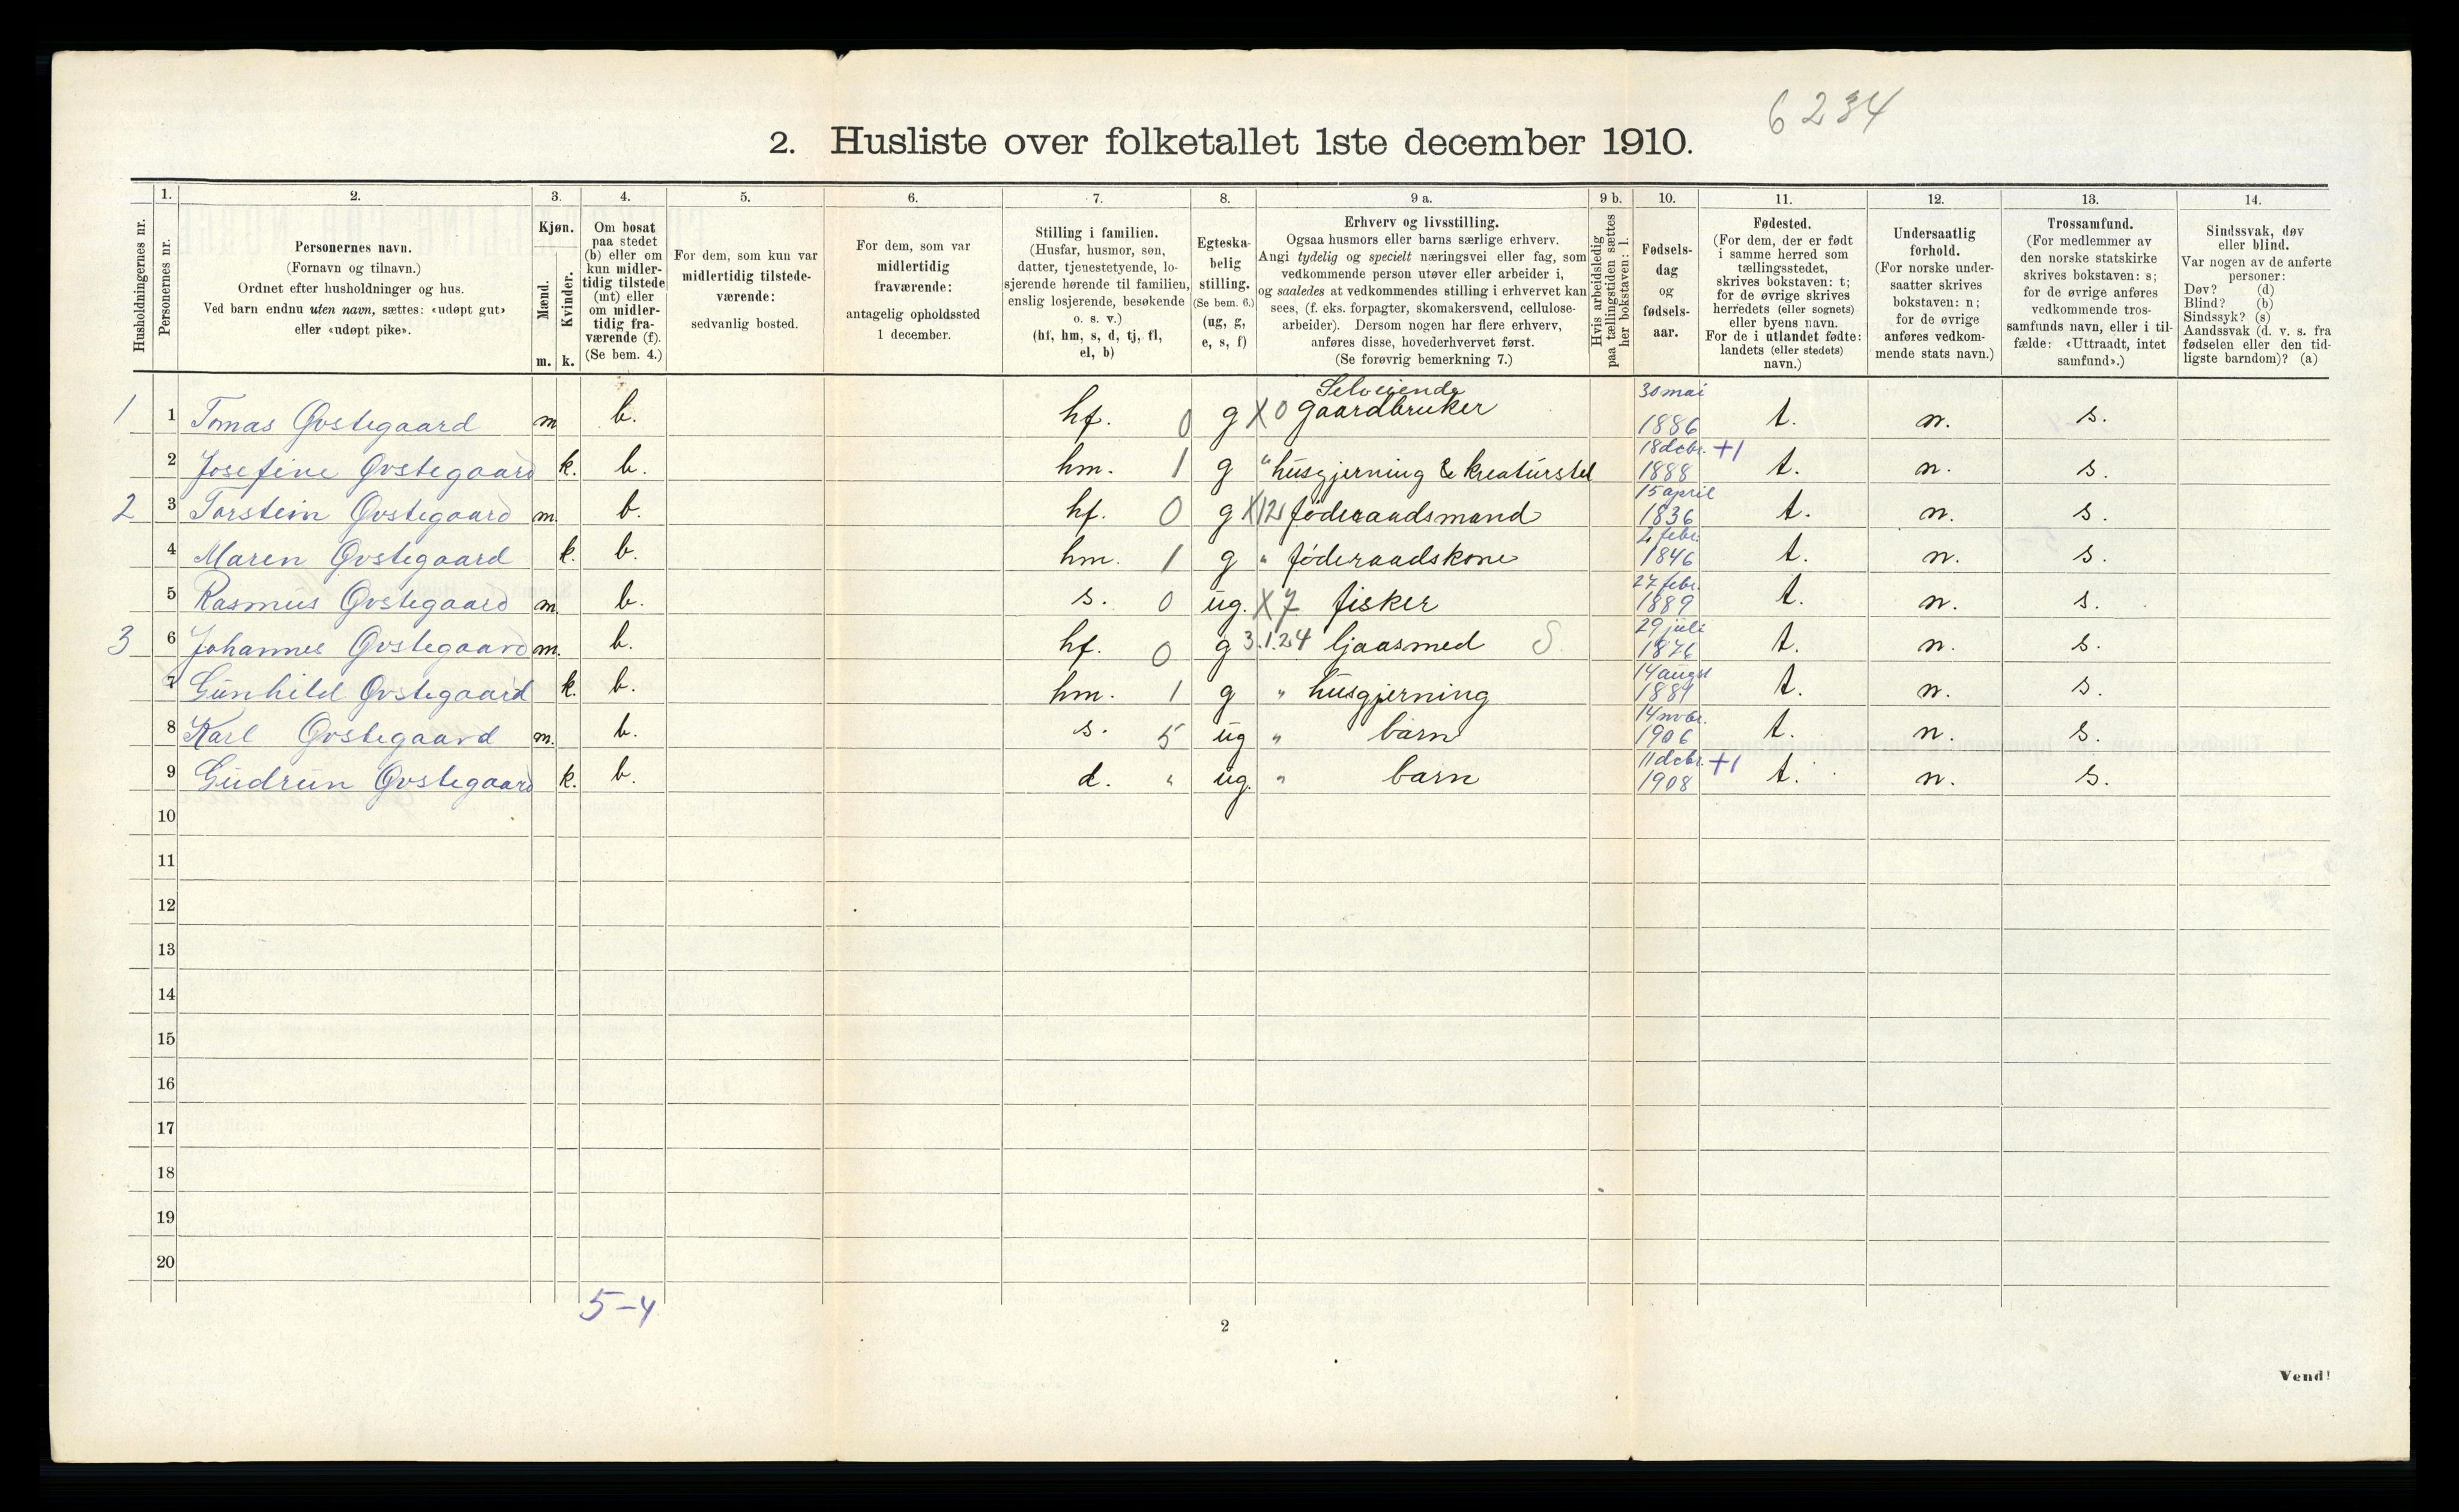 6234
2. Husliste over folketallet 1ste december 1910.
Husholdningernes nr.
1.
Personernes nr.
2.
Personernes navn.
(Fornavn og tilnavn.)
Ordnet efter husholdninger og hus.
Ved barn endnu uten navn, sættes: «udøpt gut»
eller «udøpt pike».
3.
Kjøn.
Mænd.
Kvinder.
m. k.
4.
Om bosat
paa stedet
(b) eller om
kun midler-
tidig tilstede
(mt) eller
om midler-
tidig fra-
værende (f).
(Se bem. 4.)
5.
For dem, som kun var
midlertidig tilstede-
værende:
sedvanlig bosted.
6.
For dem, som var
midlertidig
fraværende:
antagelig opholdssted
1 december.
7.
Stilling i familien.
(Husfar, husmor, søn,
datter, tjenestetyende, lo-
sjerende hørende til familien,
enslig losjerende, besøkende
o. s. v.)
(hf, hm, s, d, tj, fl,
el, b)
8.
Egteska-
belig
stilling.
(Se bem. 6.)
(ug, g,
e, s, f)
9 a.
Erhverv og livsstilling.
Ogsaa husmors eller barns særlige erhverv.
Angi tydelig og specielt næringsvei eller fag, som
vedkommende person utøver eller arbeider i,
og saaledes at vedkommendes stilling i erhvervet kan
sees, (f. eks. forpagter, skomakersvend, cellulose-
arbeider). Dersom nogen har flere erhverv,
anføres disse, hovederhvervet først.
(Se forøvrig bemerkning 7.)
9 b.
Hvis arbeidsledig
paa tællingstiden sættes
her bokstaven: l.
10.
Fødsels-
dag
og
fødsels-
aar.
11.
Fødested.
(For dem, der er født
i samme herred som
tællingsstedet,
skrives bokstaven: t;
for de øvrige skrives
herredets (eller sognets)
eller byens navn.
For de i utlandet fødte:
landets (eller stedets)
navn.)
12.
Undersaatlig
forhold.
(For norske under-
saatter skrives
bokstaven: n;
for de øvrige
anføres vedkom-
mende stats navn.)
13.
Trossamfund.
(For medlemmer av
den norske statskirke
skrives bokstaven: s;
for de øvrige anføres
vedkommende tros-
samfunds navn, eller i til-
fælde: «Uttraadt, intet
samfund».)
14.
Sindssvak, døv
eller blind.
Var nogen av de anførte
personer:
Døv? (d)
Blind? (b)
Sindssyk? (s)
Aandssvak (d. v. s. fra
fødselen eller den tid-
ligste barndom)? (a)
1 1 Tomas Qvstegaard m b. hf. 0 g X 0 Selveiende gaardbruker 30 mai 1886 t. n. s.
2 Josefine Qvstegaard k. b. hm. 1 g " husgjerning & kreaturstel 18 dcbr. 1888 +1 t. n. s.
2 3 Torstein Qvstegaard m. b. hf. 0 g X 12 föderaadsmand 15 april 1836 t. n. s.
4 Maren Qvstegaard k. b. hm. 1 g " föderaadskone 2 febr. 1846 t. n. s.
5 Rasmus Qvstegaard m. b. s. 0 ug. X 7 fisker 27 febr. 1889 t. n. s.
3 6 Johannes Qvstegaard m. b. hf. 0 g 3.1.24 ljaasmed S. 29 juli 1876 t. n. s.
7 Gunhild Qvstegaard k. b. hm. 1 g " husgjerning 14 august 1881 t. n. s.
8 Karl Qvstegaard m. b. s. 5 ug " barn 14 nvbr. 1906 t. n. s.
9 Gudrun Qvstegaard k. b. d. " ug. " barn 11 dcbr. 1908 +1 t. n. s.
10
11
12
13
14
15
16
17
18
19
20
5-4
2
Vend!